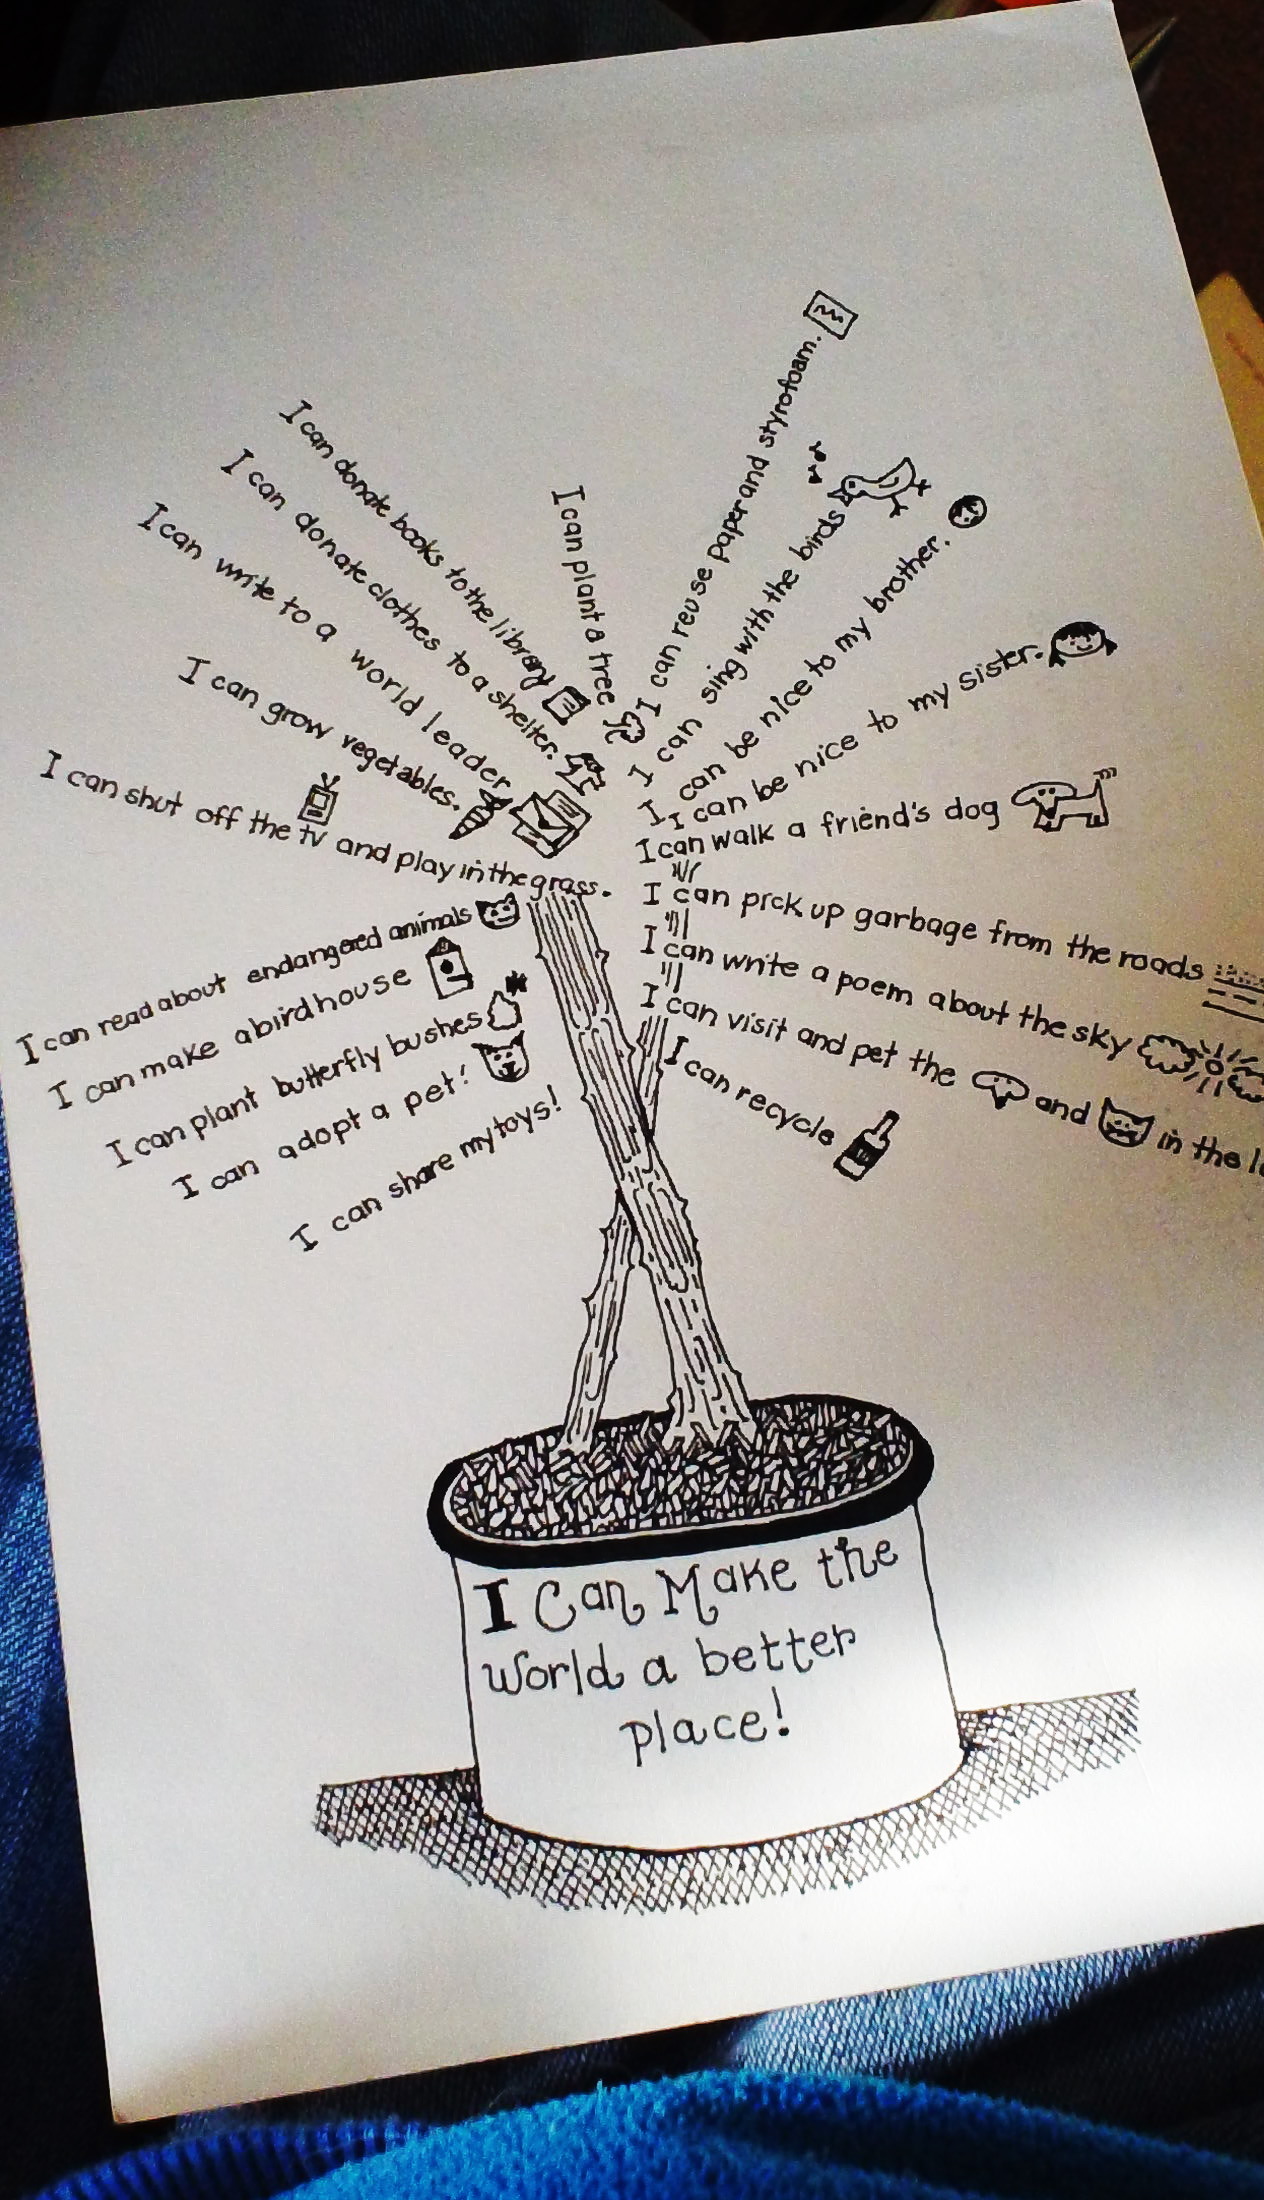 I can donate books to the library
I can donate clothes to a shelter.
I can write to a world leader
I can grow vegetables.
I can shut off the tv and play in the grass.
I can read about endangered animals
I can make a birdhouse
I can plant butterfly bushes
I can adopt a pet!
I can share my toys!
I can plant a tree
I can reuse paper and styrofoam.
I can sing with the birds
I can be nice to my brother.
I can be nice to my sister.
I can walk a friend's dog
I can pick up garbage from the roads
I can write a poem about the sky
I can visit and pet the and in the
I can recycle
I Can Make the
world a better
place!